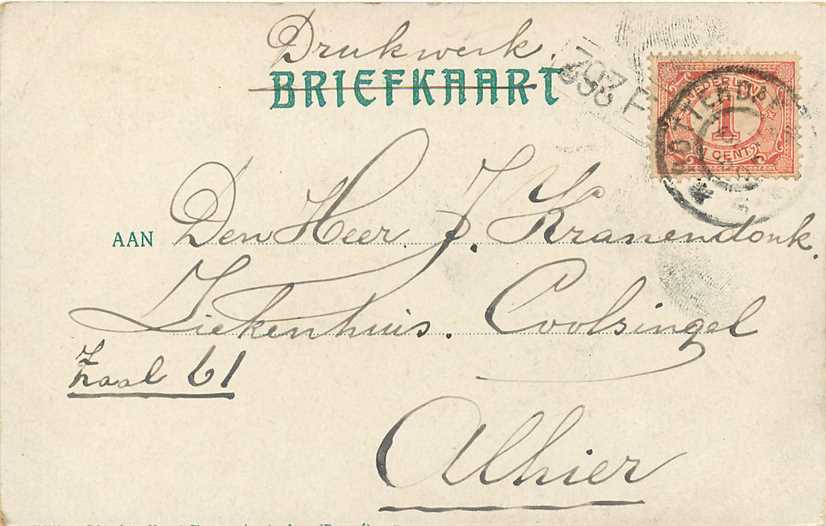 Drukwerk.
BRIEFKAART
NEDERLAND
1
CENT
ROTTERDAM
AAN Den Heer J. Kranendonk.
Ziekenhuis. Coolsingel
Zaal 61
Alhier